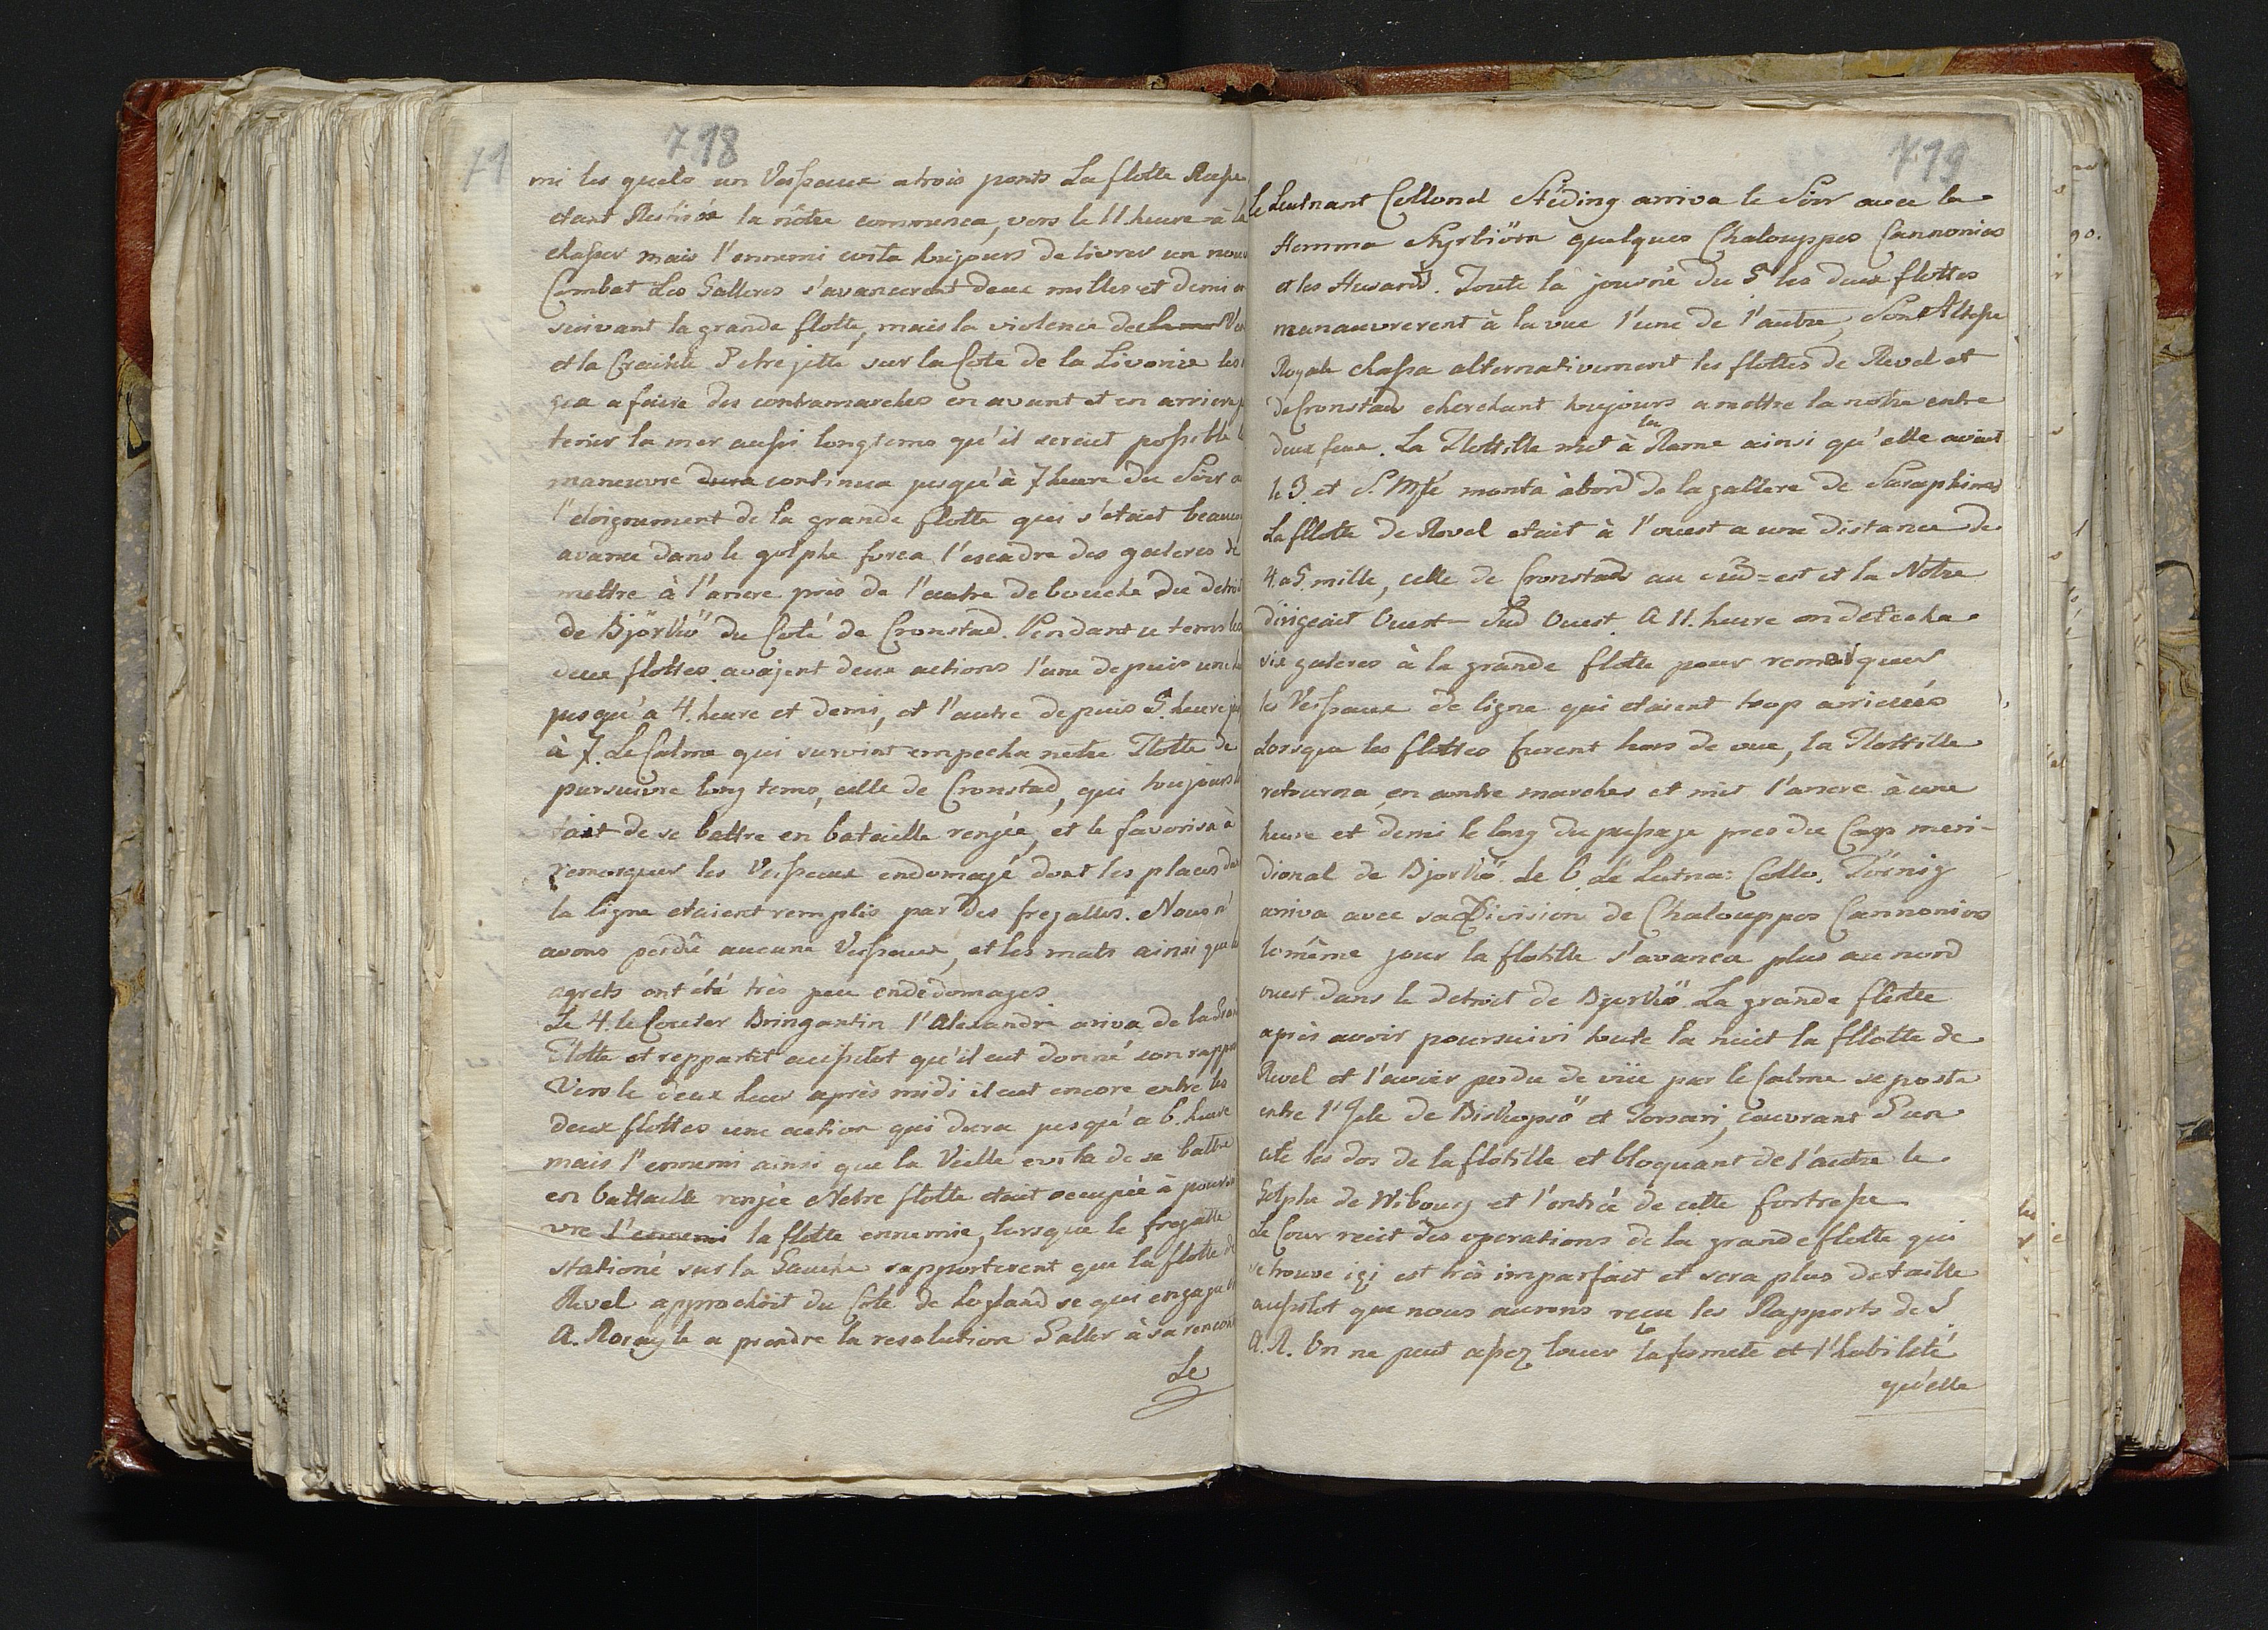 718
mi les quels un Vesseaux a trois ponts La flotte Russe
etant Restisée la nôtre commenca, vers le 11 heure à la
chasser mais l'ennemi evita toujours de livrer un nouv
Combat Les Galleres s'avancerent deux milles et demi en
suivant la grande flotte, mais la violence de la mer Ven
et la Crainte d'etre jetté sur la Cote de la Livonie les
gea a faire des contramarches en avant et en arriere p
tenir la mer aussi longtems qu'il seroit possible
maneuvre dura continua jusqu'à 7 heure du Soir
l'eloignement de la grande flotte qui s'etait beauco
avancé dans le golphe forca l'escadre des galeres de
mettre à l'ancre près de l'autre debouché du detroi
de Björkö du Coté de Cronstad. Pendant ce tems les
deux flottes avajent deux actions l'une depuis une
jusqu'a 4. heure et demi, et l'autre depuis 5. heure ju
à 7. Le Calme qui survint empecha notre Flotte de
pursuivre long tems, celle de Cronstad, qui toujours
tait de se battre en bataille rengée, et le favorisa à
remorquer les Vesseaux endomagé dont les places da
la ligne etaient remplis par des fregattes. Nous n'
avons perdû aucune Vesseaux, et les mats ainsi que le
agrets ont été très peu endédomages
Le 4. le Couter Bringantin l'Alexandre ariva de la Gra
Flotte et reppartit aussitot qu'il eut donné son rappo
Vers le deux heur après midi il eut encore entre les
deux flottes une action qui dura jusqu'a 6. heure
mais l'ennemi ainsi que la Veille evita de se battre
en battaille rengée Notre flotte etait occupée à poursui
vre l'ennemi la flotte ennemie, lorsque le fregatte
stationé sur la Gauche rapporterent que la flotte de
Revel approchoit du Coté de Hogland se qui engaga
A. Royale a prendre la resolution d'aller à sa rencon
Le
719
le Leutnant Collonel Stéding arriva le Soir avec la
Hemma Styrbiörn quelques Chalouppes Cannonies
et les Husards. Toute la journé du 5 les deux flottes
manauvrerent à la vue l'une de l'autre, Son Altesse
Royale chassa alternativement les flottes de Revel et
de Cronstad cherchant toujours a mettre la notre entre
deux feux. La Flottille mit à la Rame ainsi qu'elle avait
le 3. et S. Mté monta àbord de la gallere de Seraphimes
La fllotte de Revel etait à l'ouest a une distance de
4 a 5. mille, celle de Cronstad au sud=est et la Notre
dirigeait Ouest- Sud Ouest A 11. heure on detecha
six galeres à la grande flotte pour remorquer
les Vesseaux de ligne qui etaient trop arrierés
Lorsque les flottes furent hors de vue, la Flottille
retourna en contre marches et mit l'ancre à une
heure et demi le long du passage pres du Cap meri-
dional de Björkö. Le 6. Le Leutna: Collo. Törnig
ariva avec sa Division de Chalouppes Cannonies
le même jour la flotille s'avanca plus au nord
ouest dans le detroit de Björkö La grande flotte
après avoir poursuivi toute la nuit la fllotte de
Revel et l'avoir perdu de vüe par le Calme se posta
entre l'Isle de Biskopsö et Torsari, couvrant d'un
coté les dos de la flotille et bloquant de l'autre le
Golphe de Wibourg et l'entrée de cette fortresse
Le Cour recit des operations de la grande flotte qui
se trouve içi est très imparfait et sera plus detaille
aussitot que nous aurons reçu les Rapports de S
A. R. On ne peut assez louer la fermeté et l'habileté
qu'elle